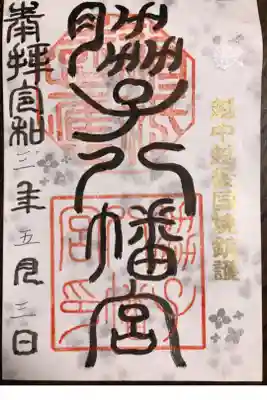 越中越後国境鎮護
脇子八幡宮
奉拝令和三年五月三日